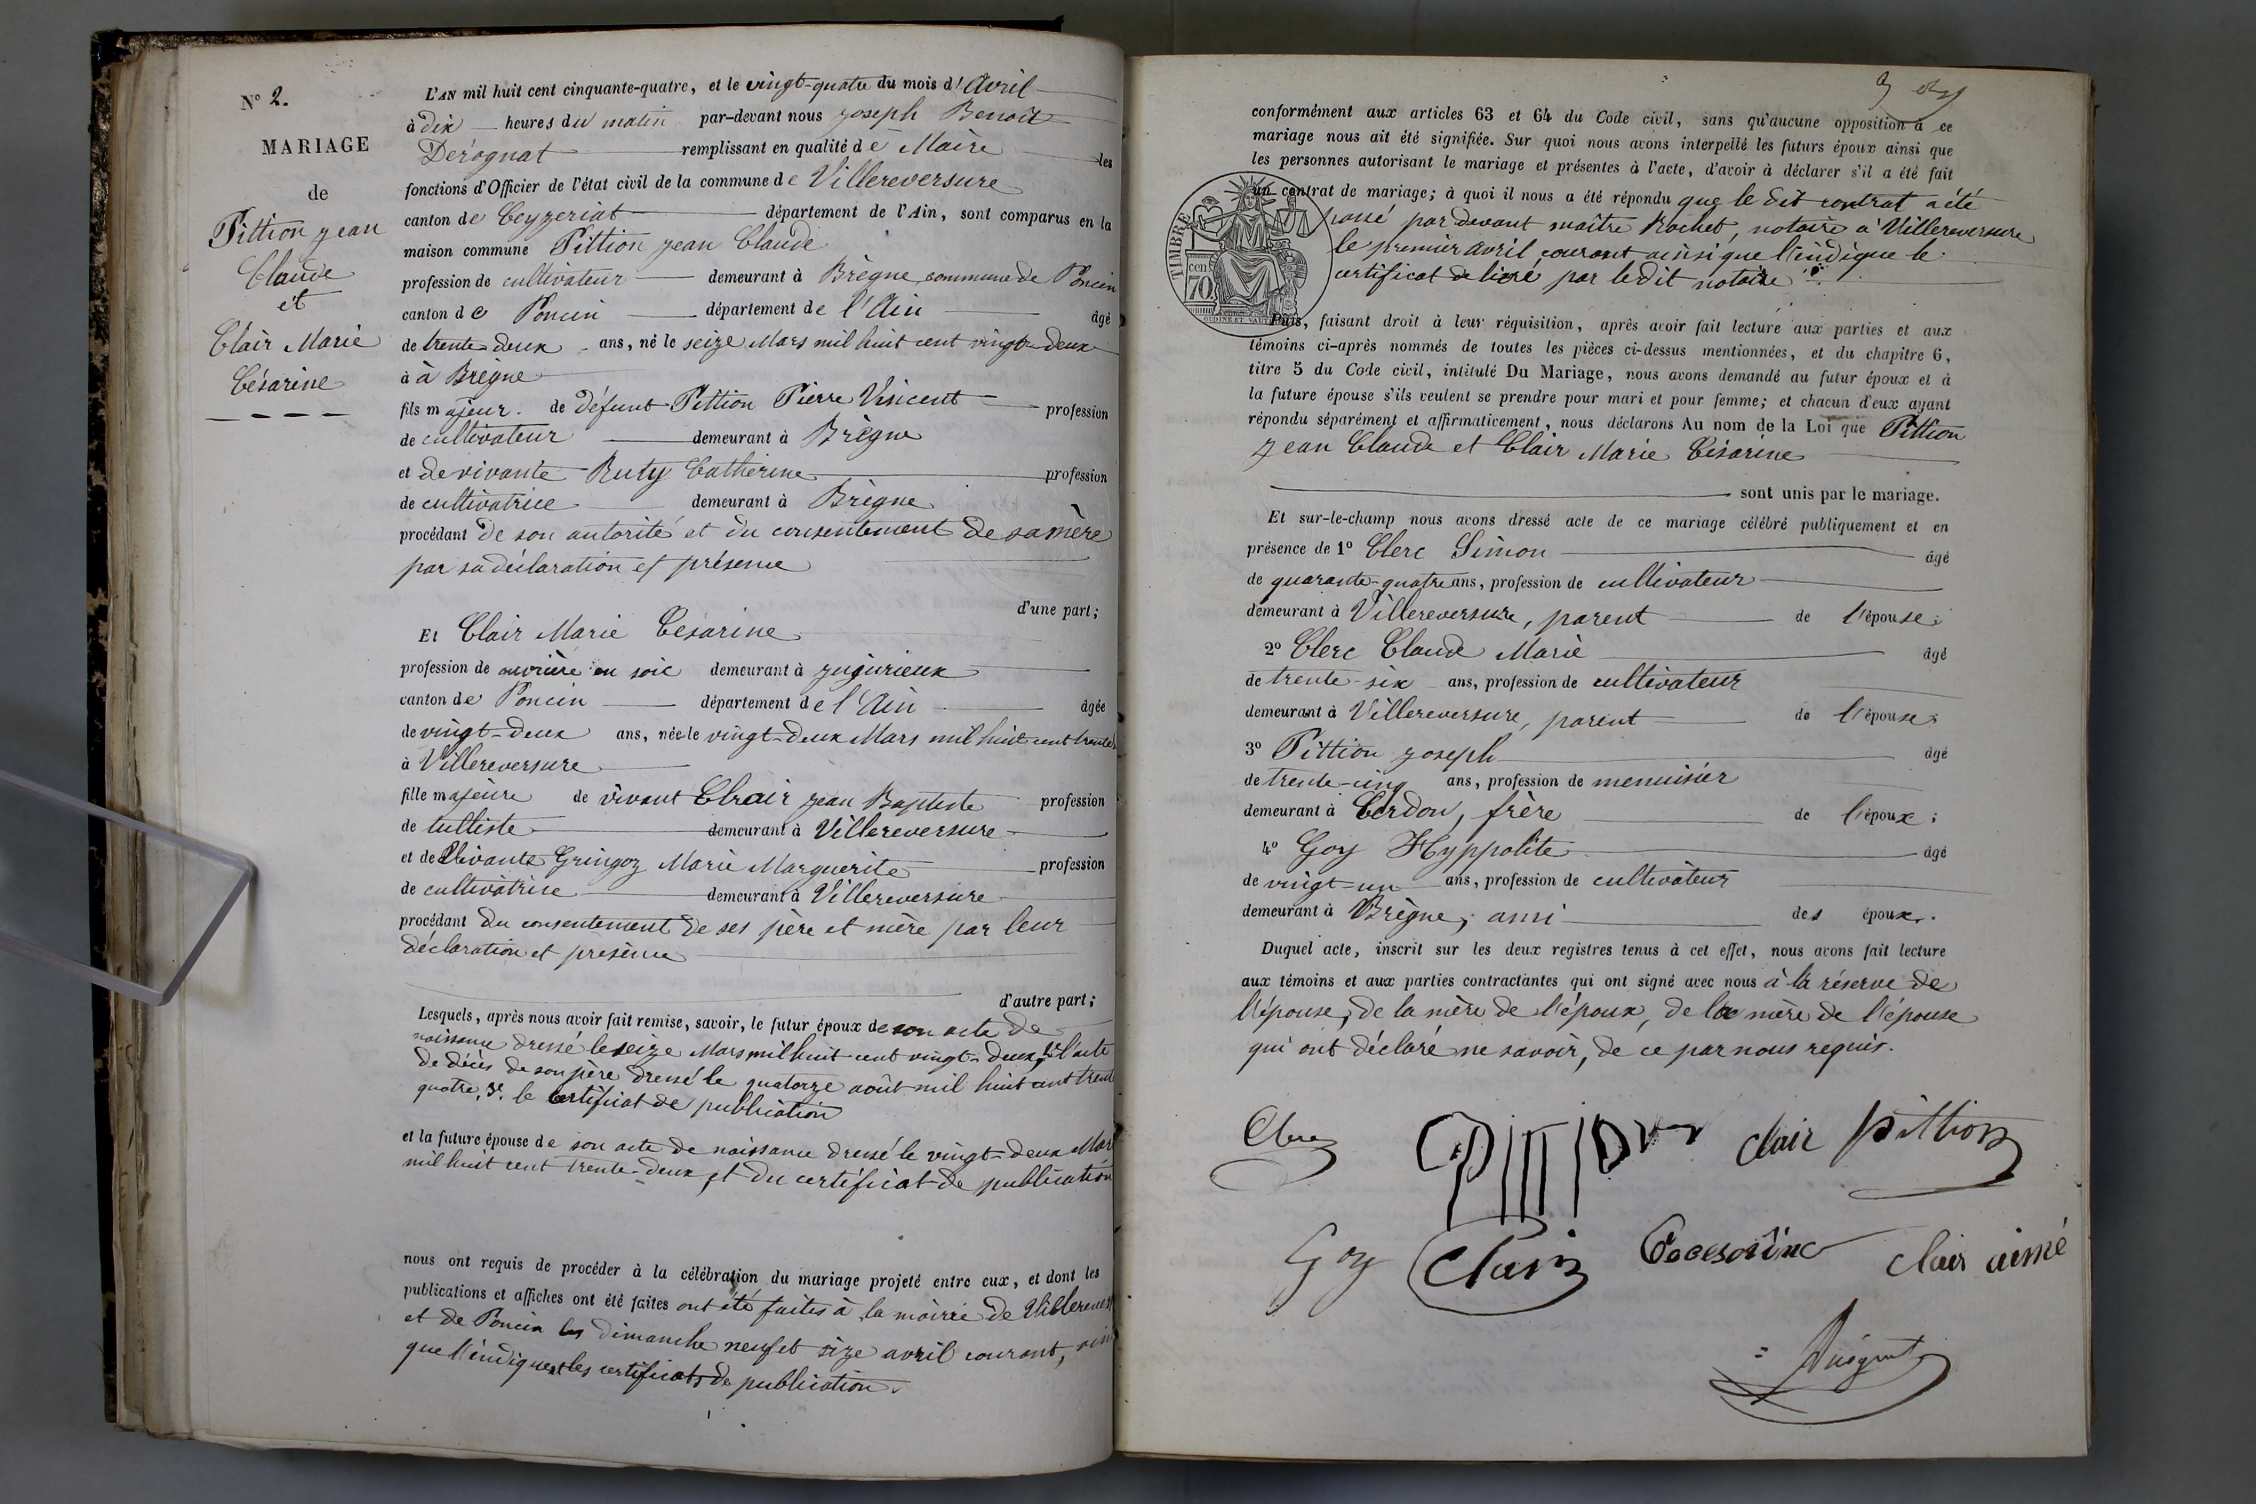 N° 2.
MARIAGE
de
Pittion Jean
Claude
et
Clair Marie
Césarine
L'AN mil huit cent cinquante-quatre, et le vingt-quatre du mois d'Avril
à dix heures du matin par-devant nous Joseph Benoit
Dérognat remplissant en qualité de Maire les
fonctions d'Officier de l'état civil de la commune de Villereversure
canton de Ceyzeriat département de l'Ain, sont comparus en la
maison commune Pittion Jean Claude
profession de cultivateur demeurant à Brègne commune de Poncin
canton de Poncin département de l'Ain âgé
de trente-deux ans, né le seize Mars mil huit cent vingt-deux
à à Brègne
fils majeur de défunt Pittion Pierre Vincent profession
de cultivateur demeurant à Brègne
et de vivante Ruty Catherine profession
de cultivatrice demeurant à Brègne
procédant de son autorité et du consentement de sa mère
par sa déclaration et présence
d'une part;
Et Clair Marie Césarine
profession de ouvrière en soie demeurant à Jujurieux
canton de Poncin département de l'Ain âgée
de vingt-deux ans, née le vingt-deux Mars mil huit cent trente
à Villereversure
fille majeure de vivant Clair Jean Baptiste profession
de tulliste demeurant à Villereversure
et de vivante Gringoz Marie Marguerite profession
de cultivatrice demeurant à Villereversure
procédant du consentement de ses père et mère par leur
déclaration et présence
d'autre part;
Lesquels, après nous avoir fait remise, savoir, le futur époux de son acte de
naissance dressé le seize Mars mil huit cent vingt-deux, 2° l'acte
de décès de son père dressé le quatorze août mil huit cent trente
quatre, 3° le certificat de publication
et la future épouse de son acte de naissance dressé le vingt-deux Mars
mil huit cent trente-deux et du certificat de publication
nous ont requis de procéder à la célébration du mariage projeté entre eux, et dont les
publications et affiches ont été faites ont été faites à la mairie de Villerevers
et de Poncin les dimanche neuf et size avril courant, ainsi
que l'indiquent les certificats de publication.
conformément aux articles 63 et 64 du Code civil, sans qu'aucune opposition à ce
mariage nous ait été signifiée. Sur quoi nous avons interpellé les futurs époux ainsi que
les personnes autorisant le mariage et présentes à l'acte, d'avoir à déclarer s'il a été fait
un contrat de mariage; à quoi il nous a été répondu que le dit contrat a été
passé par devant maître Rochet, notaire à Villereversure
le premier avril courant ainsi que l'indique le
certificat délivré par le dit notaire
TIMBRE
cen
70
Puis, faisant droit à leur réquisition, après avoir fait lecture aux parties et aux
témoins ci-après nommés de toutes les pièces ci-dessus mentionnées, et du chapitre 6,
titre 5 du Code civil, intitulé Du Mariage, nous avons demandé au futur époux et à
la future épouse s'ils veulent se prendre pour mari et pour femme; et chacun d'eux ayant
répondu séparément et affirmativement, nous déclarons Au nom de la Loi que Pittion
Jean Claude et Clair Marie Césarine
sont unis par le mariage.
Et sur-le-champ nous avons dressé acte de ce mariage célébré publiquement et en
présence de 1° Clerc Simon âgé
de quarante-quatre ans, profession de cultivateur
demeurant à Villereversure, parent de l'épouse;
2° Clerc Claude Marie âgé
de trente-six ans, profession de cultivateur
demeurant à Villereversure, parent de l'épouse;
3° Pittion Joseph âgé
de trente-cinq ans, profession de menuisier
demeurant à Cerdon, frère de l'époux;
4° Goy Hyppolite âgé
de vingt-un ans, profession de cultivateur
demeurant à Brègne, ami des époux.
Duquel acte, inscrit sur les deux registres tenus à cet effet, nous avons fait lecture
aux témoins et aux parties contractantes qui ont signé avec nous à la réserve de
l'épouse, de la mère de l'époux, de la mère de l'épouse
qui ont déclaré ne savoir, de ce par nous requis.
Clerc Pittion Clair Pittion
Goy Clair clair aimé